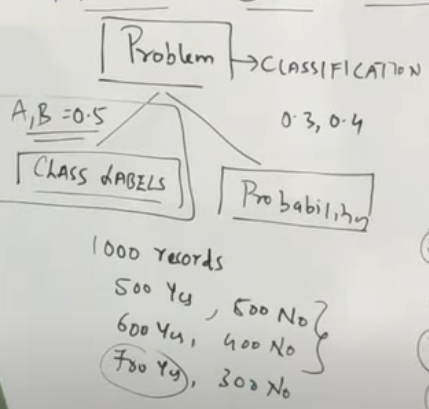 Problem → CLASSIFICATION
A, B = 0.5
0.3, 0.4
CLASS LABELS
Probability
1000 records
500 Yes, 500 No
600 Yes, 400 No
700 Yes, 300 No